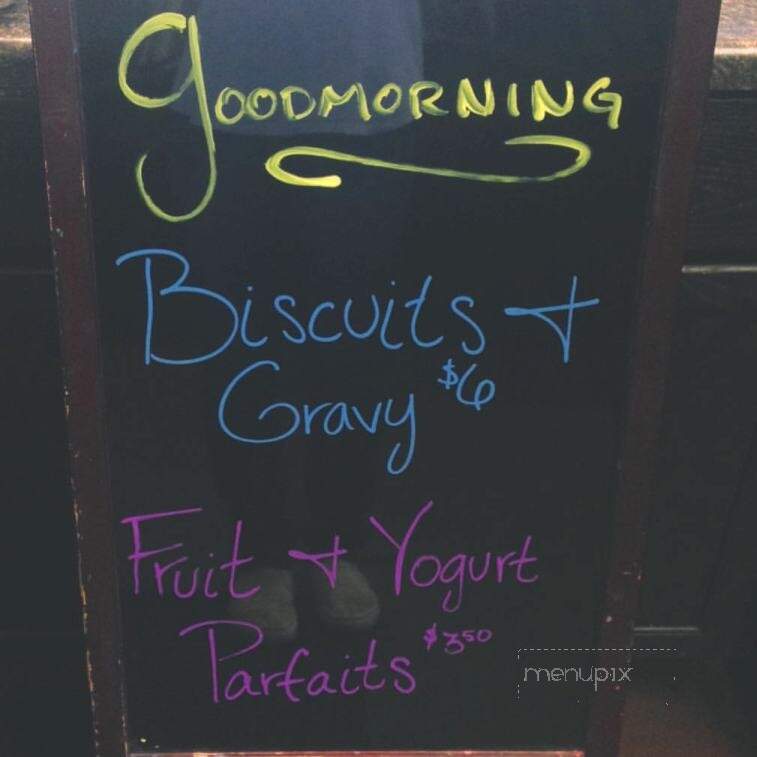 GOODMORNING
Biscuits +
Gravy $6
Fruit + Yogurt
Parfaits $3.50
menupix